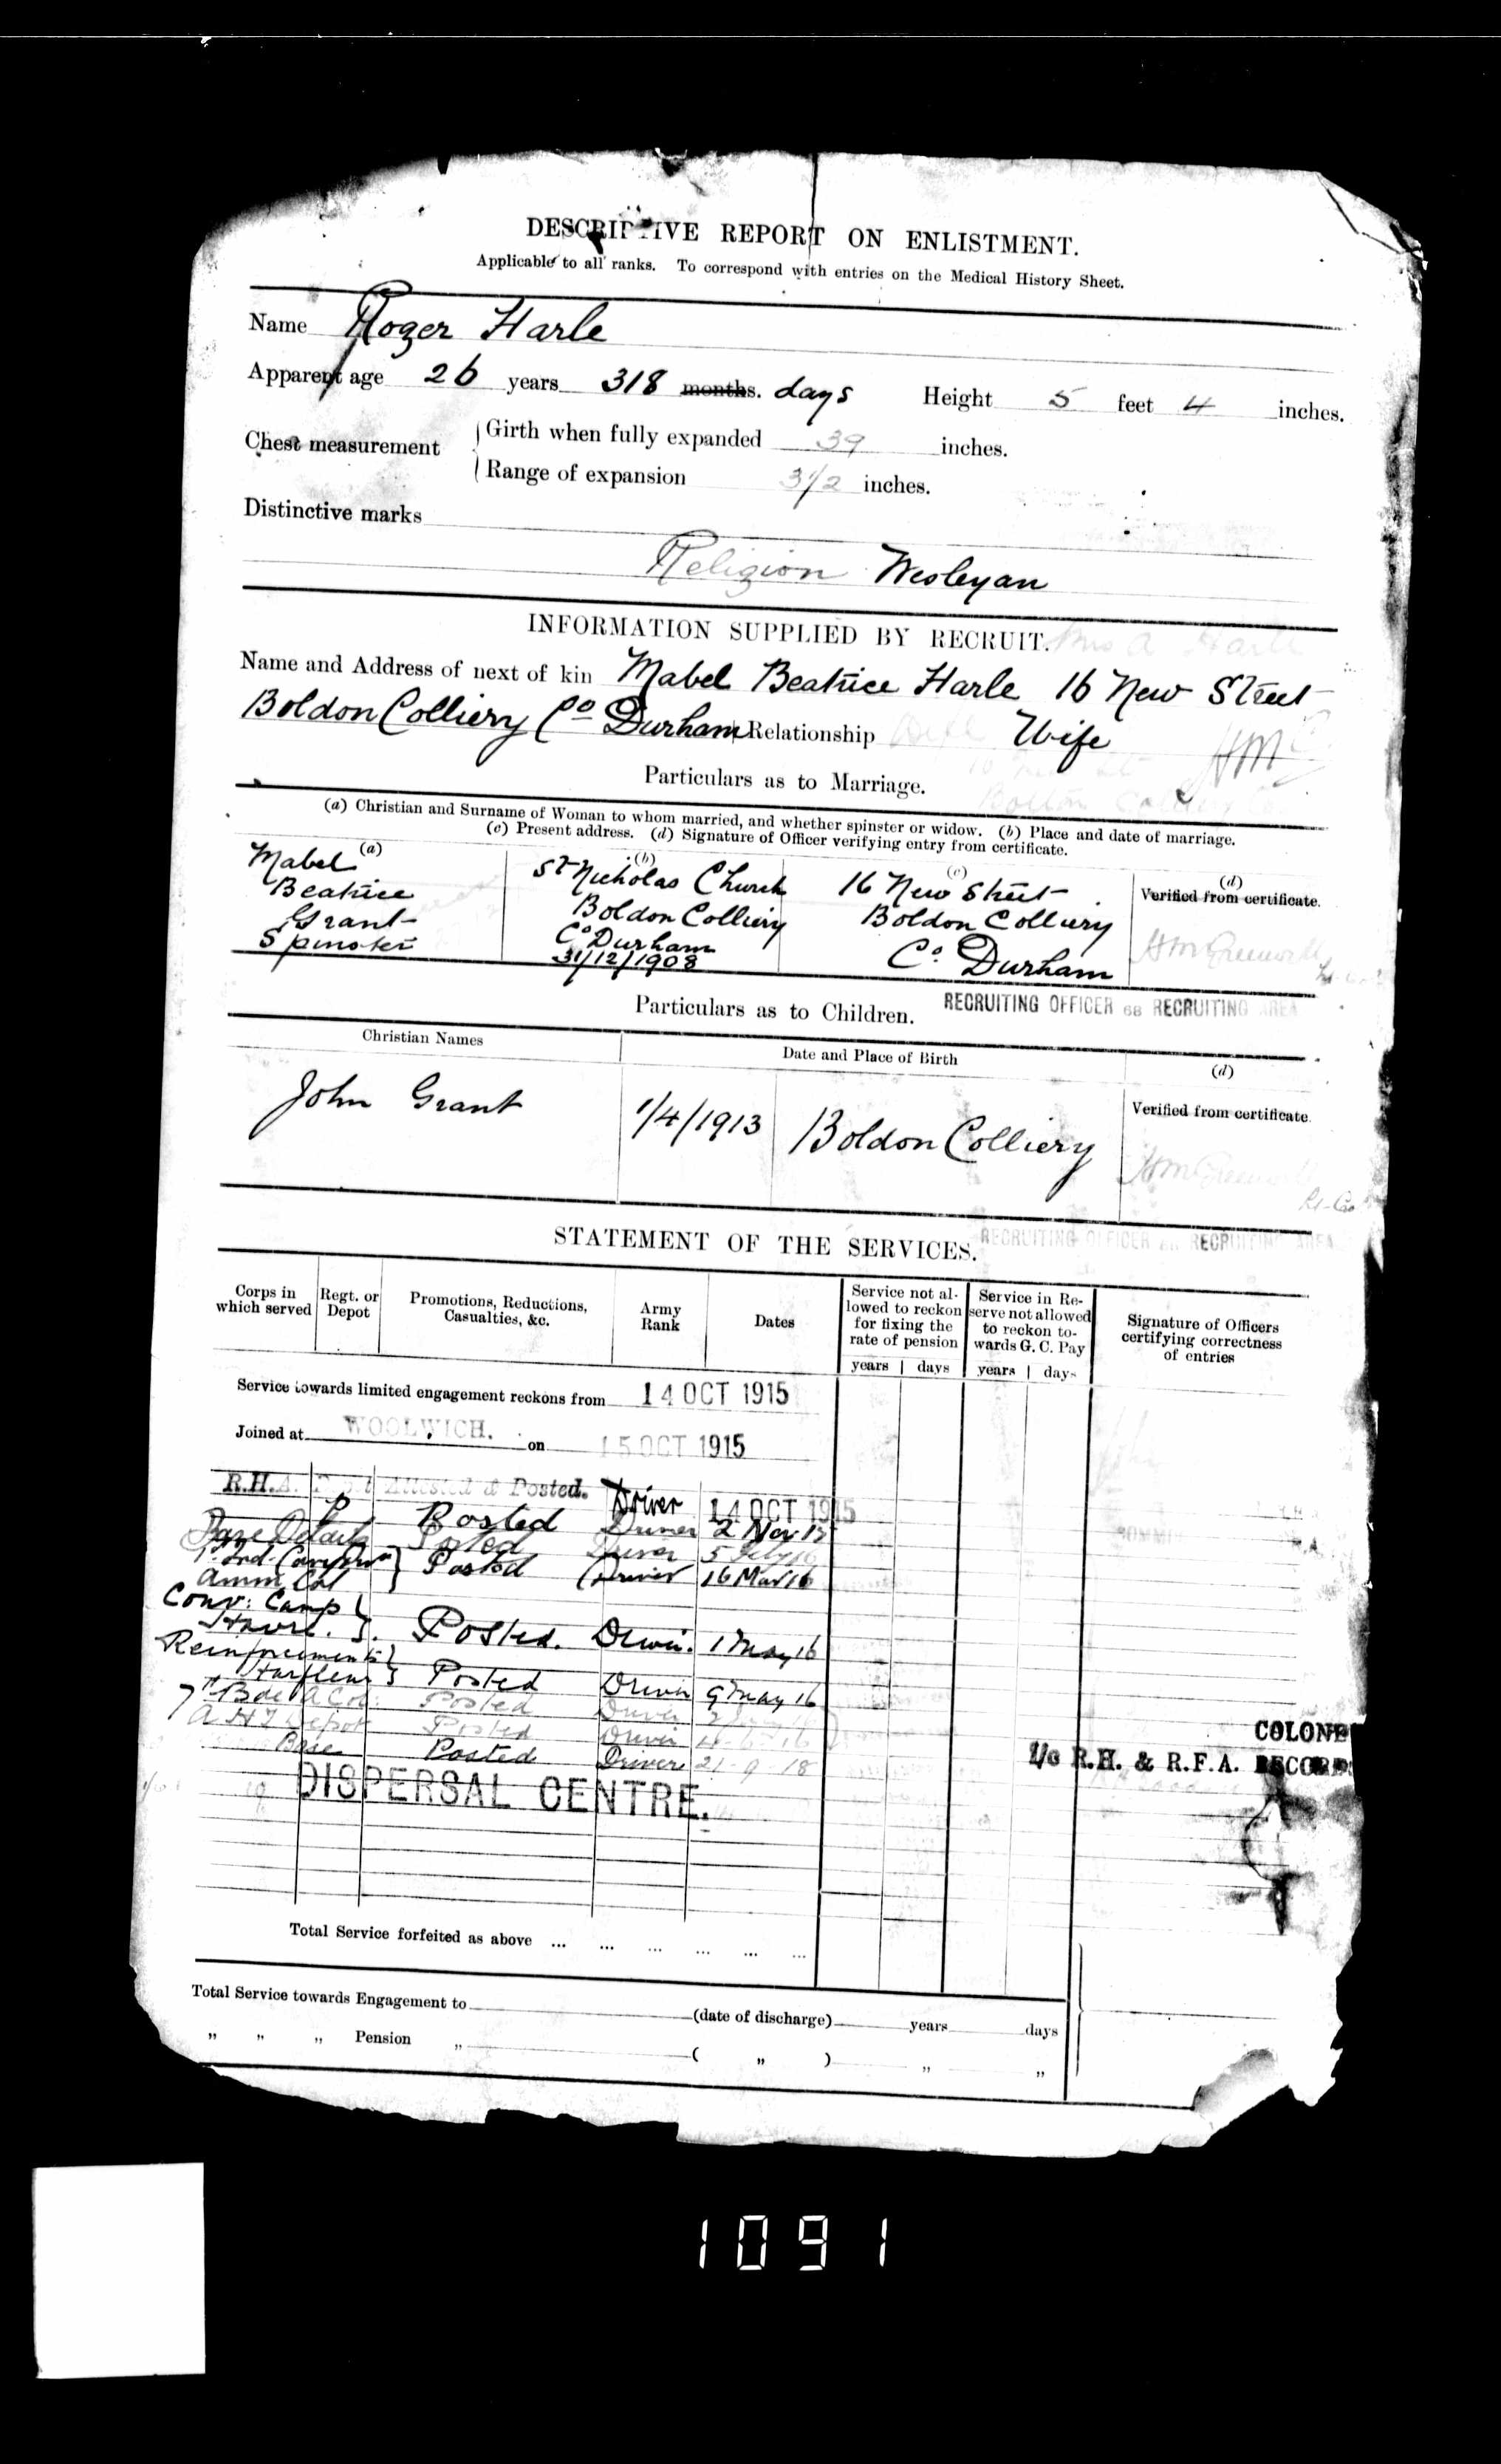 DESCRIPTIVE REPORT ON ENLISTMENT.
Applicable to all ranks. To correspond with entries on the Medical History Sheet.
Name Roger Harle
Apparent age 26 years 318 months. days Height 5 feet 4 inches.
Chest measurement
Girth when fully expanded 39 inches.
Range of expansion 3 1/2 inches.
Distinctive marks
Religion Wesleyan
INFORMATION SUPPLIED BY RECRUIT. Mrs A Harle
Name and Address of next of kin Mabel Beatrice Harle 16 New Street
Boldon Colliery Co Durham Relationship Wife Wife
Particulars as to Marriage.
(a) Christian and Surname of Woman to whom married, and whether spinster or widow. (b) Place and date of marriage.
(c) Present address. (d) Signature of Officer verifying entry from certificate.
(a) (b) (c) (d)
Mabel St Nicholas Church 16 New Street Verified from certificate.
Beatrice Boldon Colliery Boldon Colliery
Grant Co Durham Co Durham
Spinster 31/12/1908
Particulars as to Children. RECRUITING OFFICER 68 RECRUITING AREA
Christian Names Date and Place of Birth (d)
John Grant 1/4/1913 Boldon Colliery Verified from certificate.
Lt-Col
STATEMENT OF THE SERVICES. RECRUITING OFFICER RECRUITING AREA
Corps in which served Regt. or Depot Promotions, Reductions, Casualties, &c. Army Rank Dates Service not allowed to reckon for fixing the rate of pension Service in Reserve not allowed to reckon towards G. C. Pay Signature of Officers certifying correctness of entries
years days years days
Service towards limited engagement reckons from 14 OCT 1915
Joined at WOOLWICH. on 15 OCT 1915
R.H.A. Depot Attested & Posted. Driver 14 OCT 1915
Posted Driver 2 Nov 15
Base Details Posted Driver 5 Feby 16
1st Ind. Cav Divn
Amm Col Posted Driver 16 Mar 16
Conv: Camp
Havre. Posted. Driver. 1 May 16
Reinforcements
Harfleur Posted Driver 9 May 16
7th Bde A Col: Posted Driver
A H T Depot Posted Driver
Base Posted Driver 21-9-18
COLONE
I/c R.H. & R.F.A. RECORDS
DISPERSAL CENTRE.
Total Service forfeited as above ... ... ... ... ... ...
Total Service towards Engagement to (date of discharge) years days
„ „ „ Pension „ ( „ ) „ „
1091